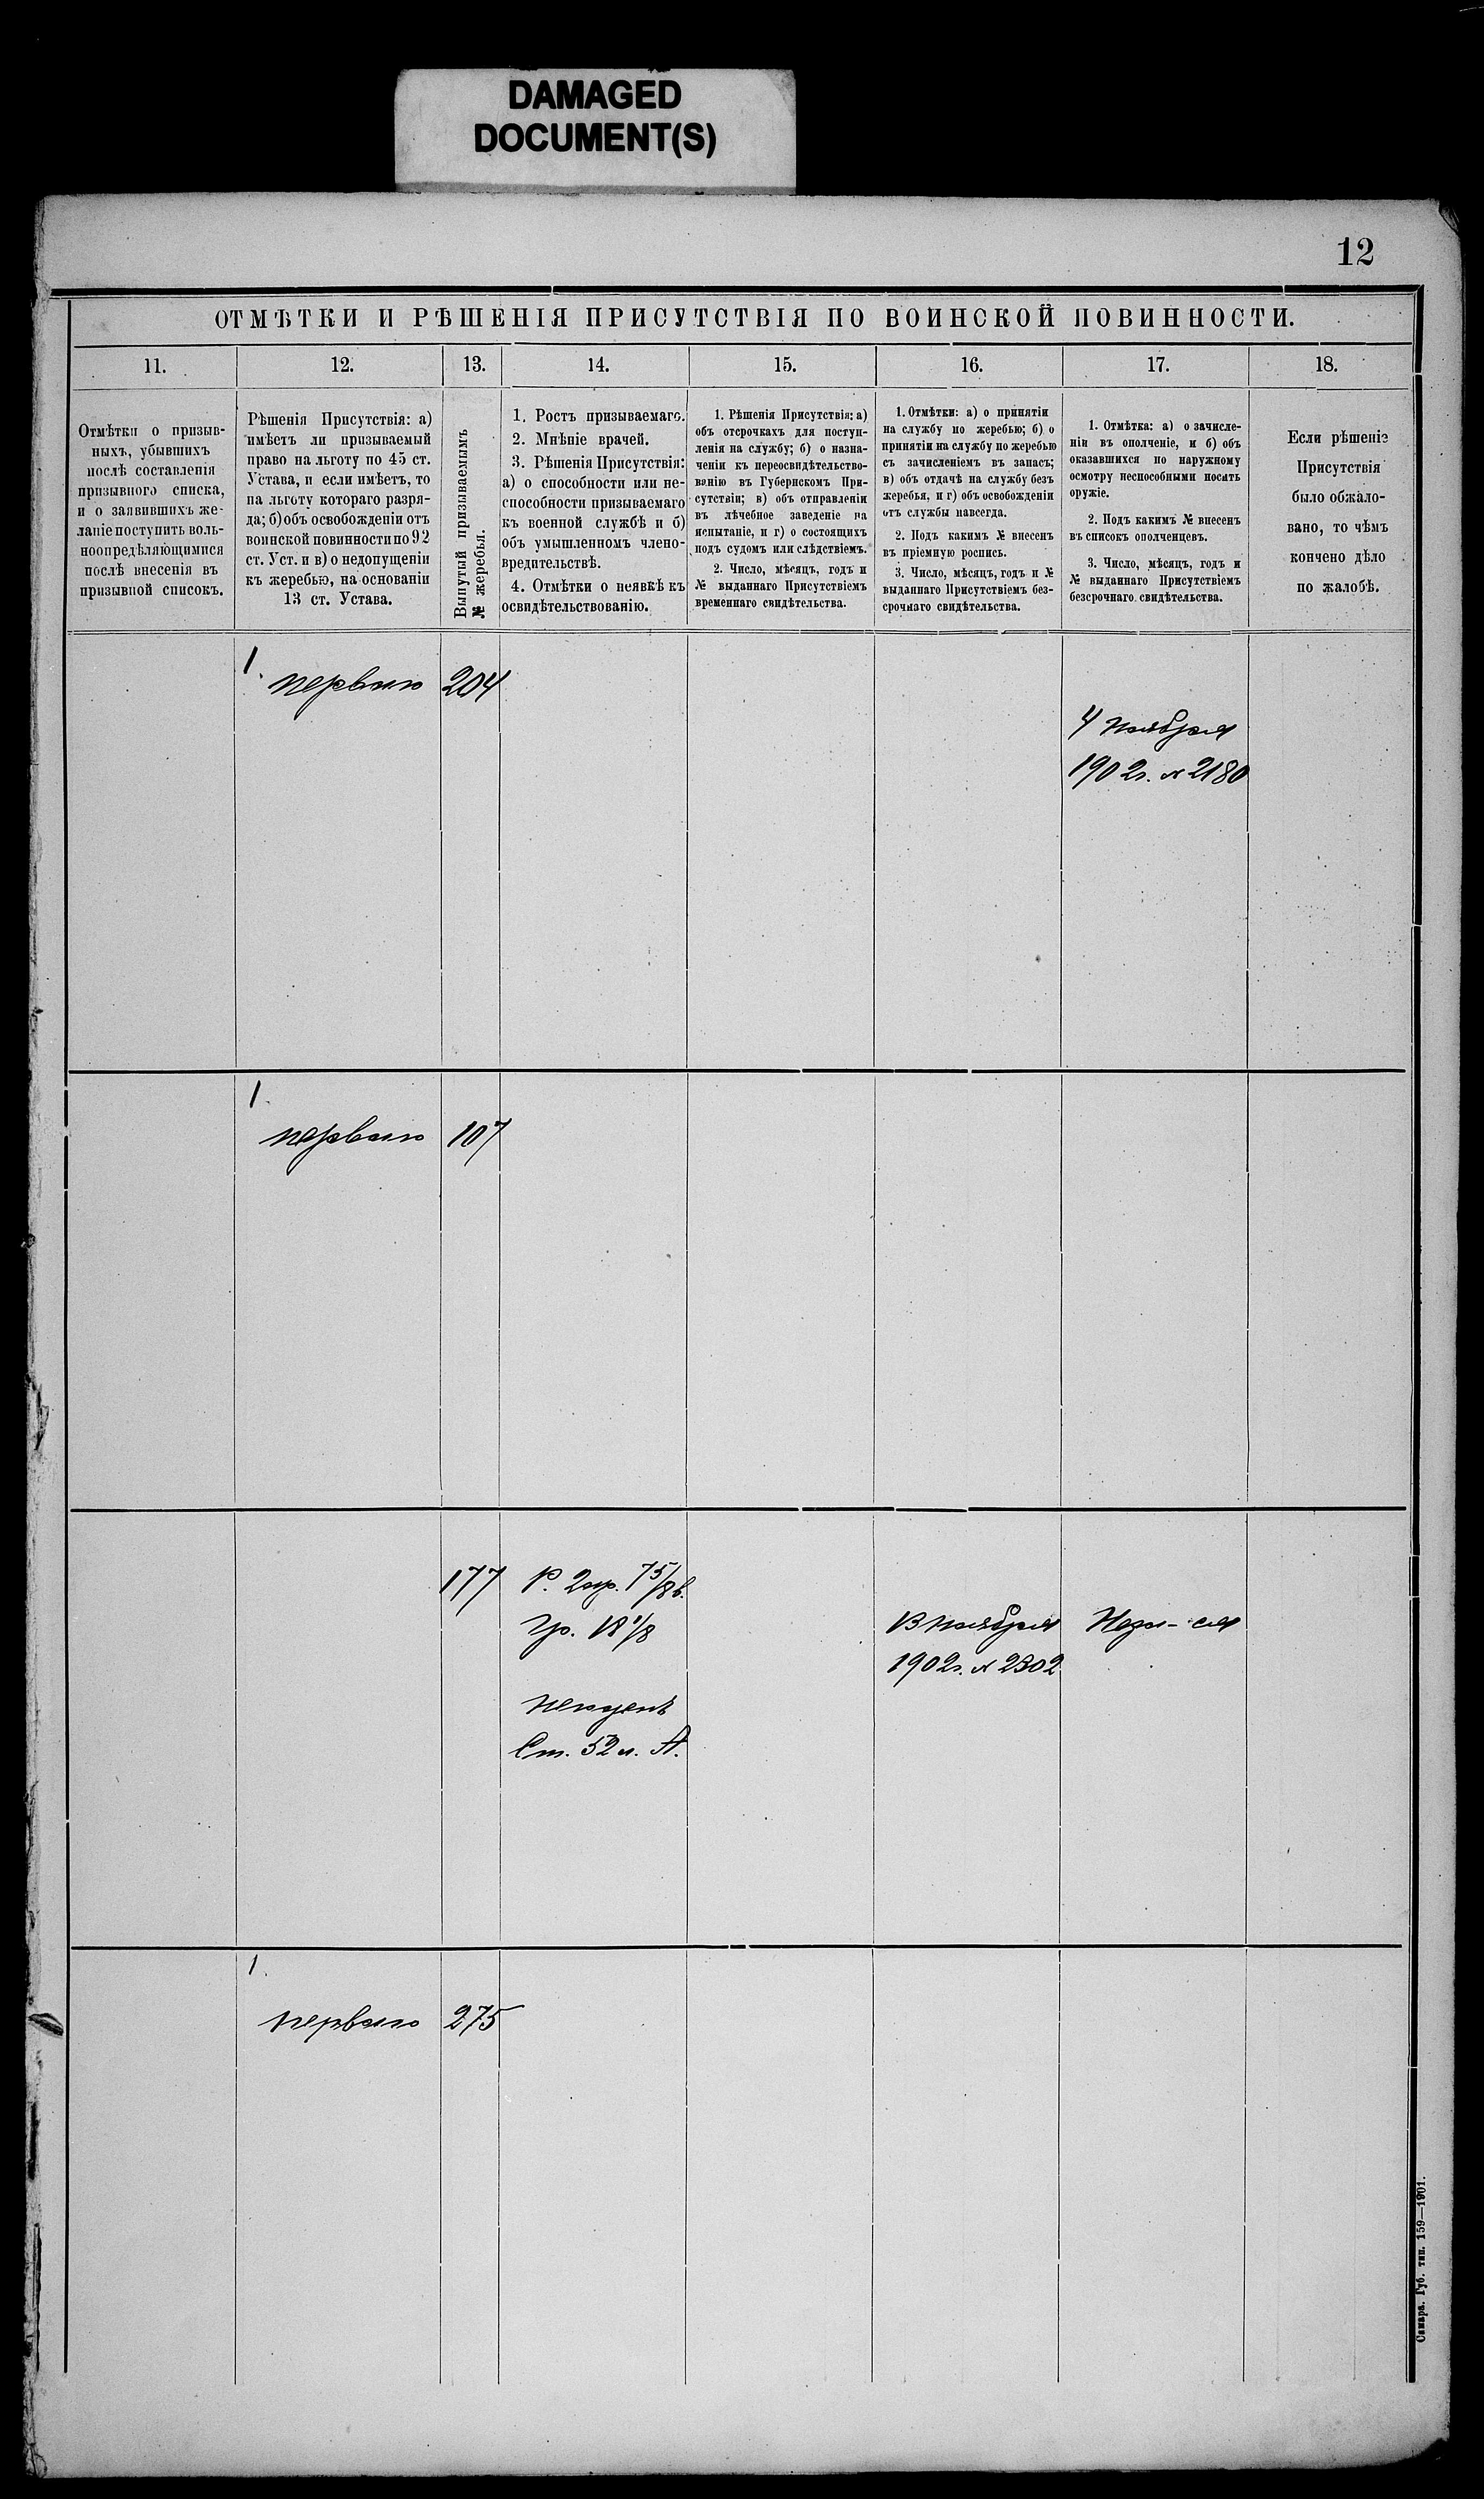 DAMAGED
DOCUMENT(S)
12
ОТМѢТКИ И РѢШЕНІЯ ПРИСУТСТВІЯ ПО ВОИНСКОЙ ПОВИННОСТИ.
11.
12.
13.
14.
15.
16.
17.
18.
Отмѣтки о призыв-
ныхъ, убывшихъ
послѣ составленія
призывного списка,
и о заявившихъ же-
ланіе поступить воль-
ноопредѣляющимися
послѣ внесенія въ
призывной списокъ.
Рѣшенія Присутствія: а)
имѣетъ ли призываемый
право на льготу по 45 ст.
Устава, и если имѣетъ, то
на льготу котораго разря-
да; б) объ освобожденіи отъ
воинской повинности по 92
ст. Уст. и в) о недопущеніи
къ жеребью, на основаніи
13 ст. Устава.
Вынутый призываемымъ
№ жеребья.
1. Ростъ призываемаго.
2. Мнѣніе врачей.
3. Рѣшенія Присутствія:
а) о способности или не-
способности призываемаго
къ военной службѣ и б)
объ умышленномъ члено-
вредительствѣ.
4. Отмѣтки о неявкѣ къ
освидѣтельствованію.
1. Рѣшенія Присутствія: а)
объ отсрочкахъ для поступ-
ленія на службу; б) о назна-
ченіи къ переосвидѣтельство-
ванію въ Губернскомъ При-
сутствіи; в) объ отправленіи
въ лѣчебное заведеніе на
испытаніе, и г) о состоящихъ
подъ судомъ или слѣдствіемъ.
2. Число, мѣсяцъ, годъ и
№ выданнаго Присутствіемъ
временнаго свидѣтельства.
1. Отмѣтки: а) о принятіи
на службу по жеребью; б) о
принятіи на службу по жеребью
съ зачисленіемъ въ запасъ;
в) объ отдачѣ на службу безъ
жеребья, и г) объ освобожденіи
отъ службы навсегда.
2. Подъ какимъ № внесенъ
въ пріемную роспись.
3. Число, мѣсяцъ, годъ и №
выданнаго Присутствіемъ без-
срочнаго свидѣтельства.
1. Отмѣтка: а) о зачисле-
ніи въ ополченіе, и б) объ
оказавшихся по наружному
осмотру неспособными носить
оружіе.
2. Подъ какимъ № внесенъ
въ списокъ ополченцевъ.
3. Число, мѣсяцъ, годъ и
№ выданнаго Присутствіемъ
безсрочнаго свидѣтельства.
Если рѣшеніе
Присутствія
было обжало-
вано, то чѣмъ
кончено дѣло
по жалобѣ.
1.
перваго 204
4 Ноября
1902г. № 2180
1.
перваго 107
177 Р. 2 ар. 7 5/8 в.
Гр. 18 1/8
Негоденъ
Ст. 52 л. А.
13 Ноября
1902г. № 2302
1.
перваго 275
Самара. Губ. тип. 159—1901.